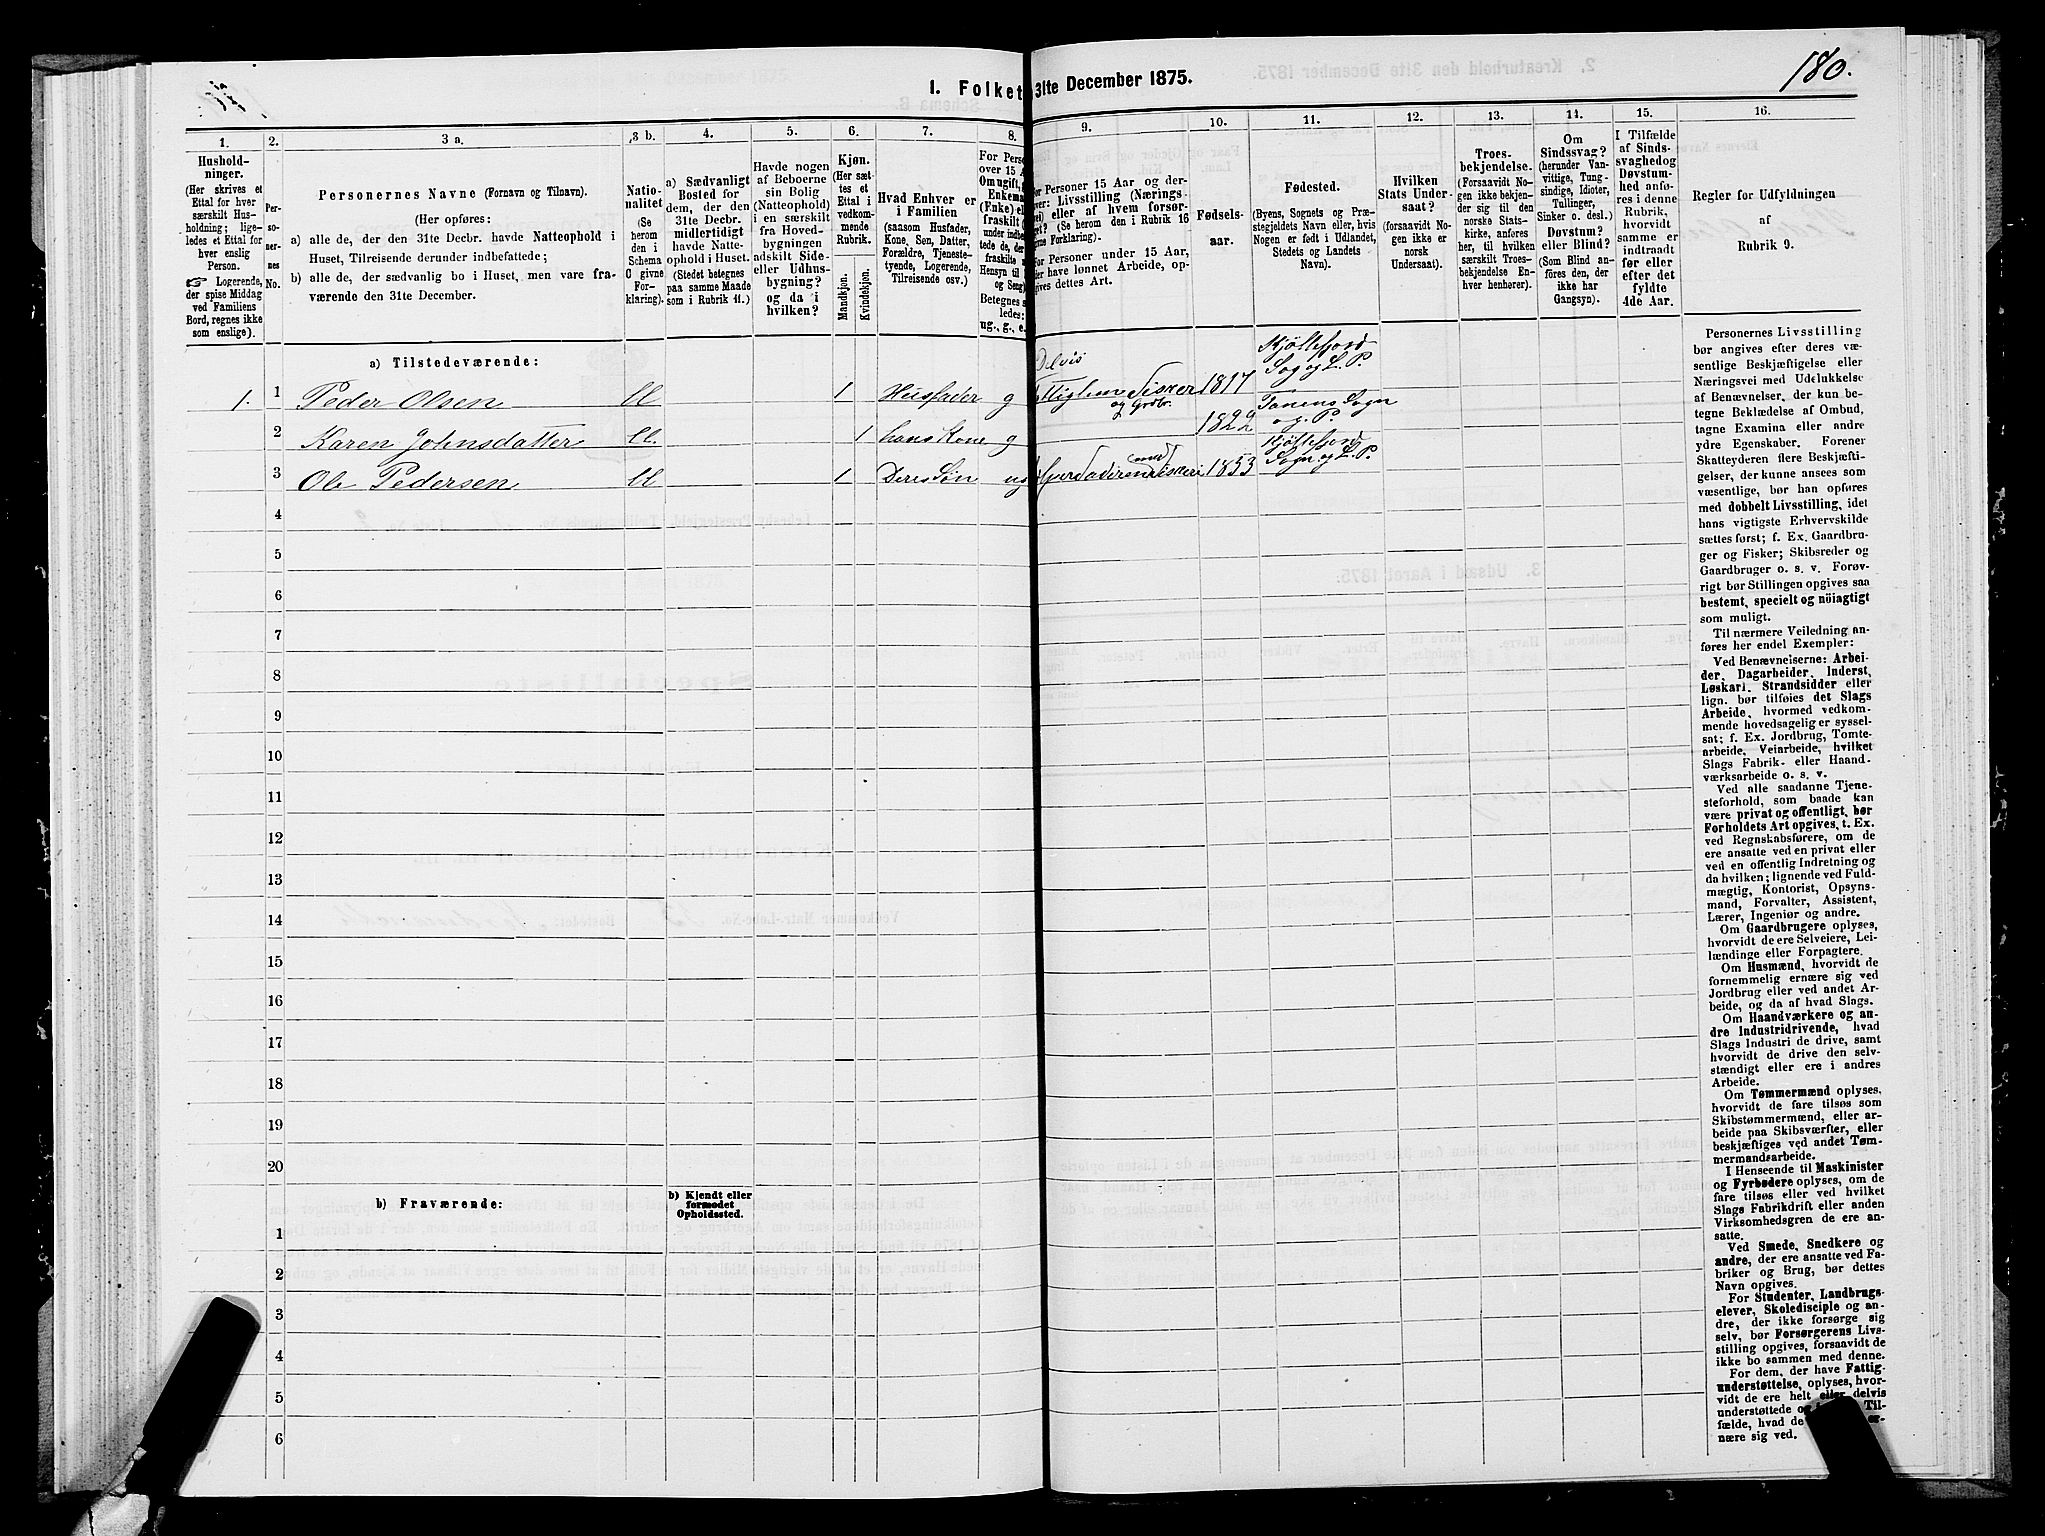 180.
I. Folket 31te December 1875.
1. 2. 3 a. 3 b. 4. 5. 6. 7. 8. 9. 10. 11. 12. 13. 14. 15. 16.
Hushold-
ninger.
(Her skrives et
Ettal for hver
særskilt Hus-
holdning; lige-
ledes et Ettal for
hver enslig
Person.
☞ Logerende,
der spise Middag
ved Familiens
Bord, regnes ikke
som enslige).
Per-
so-
ner-
nes
No.
Personernes Navne (Fornavn og Tilnavn).
(Her opføres:
a) alle de, der den 31te Decbr. havde Natteophold i
Huset, Tilreisende derunder indbefattede;
b) alle de, der sædvanlig bo i Huset, men vare fra-
værende den 31te December.
Natio-
nalitet
(Se
herom
den i
Schema
C givne
For-
klaring).
a) Sædvanligt
Bosted for
dem, der den
31te Decbr.
midlertidigt
havde Natte-
ophold i Huset.
(Stedet betegnes
paa samme Maade
som i Rubrik 11.)
Havde nogen
af Beboerne
sin Bolig
(Natteophold)
i en særskilt
fra Hoved-
bygningen
adskilt Side-
eller Udhus-
bygning?
og da i
hvilken?
Kjøn.
(Her sæt-
tes et
Ettal i
vedkom-
mende
Rubrik.
Mandkjøn.
Kvindekjøn.
Hvad Enhver er
i Familien
(saasom Husfader,
Kone, Søn, Datter,
Forældre, Tjeneste-
tyende, Logerende,
Tilreisende osv.)
For Perso
over 15 A
Om ugift, g
Enkema
(Enke) el
fraskilt
under indbe
tede de, de
fraskilte
Hensyn til
og Seng
Betegnes s
ledes:
ug., g., e.
For Personer 15 Aar og der-
over: Livsstilling (Nærings-
vei) eller af hvem forsør-
get? (Se herom den i Rubrik 16
givne Forklaring).
For Personer under 15 Aar,
der have lønnet Arbeide, op-
gives dettes Art.
Fødsels-
aar.
Fødested.
(Byens, Sognets og Præ-
stegjeldets Navn eller, hvis
Nogen er født i Udlandet,
Stedets og Landets
Navn).
Hvilken
Stats Under-
saat?
(forsaavidt No-
gen ikke er
norsk
Undersaat).
Troes-
bekjendelse.
(Forsaavidt No-
gen ikke bekjen-
der sig til den
norske Stats-
kirke, anføres
her, til hvilken
særskilt Troes-
bekjendelse En-
hver henhører).
Om
Sindssvag?
(herunder Van-
vittige, Tung-
sindige, Idioter,
Tullinger,
Sinker o. desl.)
Døvstum?
eller Blind?
(Som Blind an-
føres den, der
ikke har
Gangsyn).
I Tilfælde
af Sinds-
svaghed og
Døvstum-
hed anfø-
res i denne
Rubrik,
hvorvidt
samme er
indtraadt
før eller
efter det
fyldte
4de Aar.
Regler for Udfyldningen
af
Rubrik 9.
a) Tilstedeværende:
1. 1 Peder Olsen 1 Husfader g Fisker og Grdbr. 1817 Kjöllefjord Sog og L. P.
2 Karen Johnsdatter 1 hans Kone g 1822 Tanens Sogn og P.
3 Ole Pedersen 1 Deres Søn ug 1853 Kjöllefjord Sogn og L. P.
4
5
6
7
8
9
10
11
12
13
14
15
16
17
18
19
20
b) Fraværende:
b) Kjendt eller
formodet
Opholdssted.
1
2
3
4
5
6
Personernes Livsstilling
bør angives efter deres væ-
sentlige Beskjæftigelse eller
Næringsvei med Udelukkelse
af Benævnelser, der kun be-
tegne Beklædelse af Ombud,
tagne Examina eller andre
ydre Egenskaber. Forener
Skatteyderen flere Beskjæfti-
gelser, der kunne ansees som
væsentlige, bør han opføres
med dobbelt Livsstilling, idet
hans vigtigste Erhvervskilde
sættes først; f. Ex. Gaardbru-
ger og Fisker; Skibsreder og
Gaardbruger o. s. v. Forøv-
rigt bør Stillingen opgives saa
bestemt, specielt og nöiagtigt
som muligt.
Til nærmere Veiledning an-
føres her endel Exempler:
Ved Benævnelserne: Arbei-
der, Dagarbeider, Inderst,
Løskarl, Strandsidder eller
lign. bør tilføies det Slags
Arbeide, hvormed vedkom-
mende hovedsagelig er syssel-
sat; f. Ex. Jordbrug, Tomte-
arbeide, Veiarbeide, hvilket
Slags Fabrik- eller Haand-
værksarbeide o. s. v.
Ved alle saadanne Tjene-
steforhold, som baade kan
være privat og offentligt, bør
Forholdets Art opgives, t. Ex.
ved Regnskabsførere, om de
ere ansatte ved en privat eller
ved en offentlig Indretning og
da hvilken; lignende ved Fuld-
mægtig, Kontorist, Opsyns-
mand, Forvalter, Assistent,
Lærer, Ingeniør og andre.
Om Gaardbrugere oplyses,
hvorvidt de ere Selveiere, Lei-
lændinge eller Forpagtere.
Om Husmænd, hvorvidt de
fornemmelig ernære sig ved
Jordbrug eller ved andet Ar-
beide, og da af hvad Slags.
Om Haandværkere og an-
dre Industridrivende, hvad
Slags Industri de drive, samt
hvorvidt de drive den selv-
stændigt eller ere i andres
Arbeide.
Om Tømmermænd oplyses,
hvorvidt de fare tilsøs som
Skibstømmermænd, eller ar-
beide paa Skibsværfter, eller
beskjæftiges ved andet Tøm-
mermandsarbeide.
I Henseende til Maskinister
og Fyrbødere oplyses, om de
fare tilsøs eller ved hvilket
Slags Fabrikdrift eller anden
Virksomhedsgren de ere an-
satte.
Ved Smede, Snedkere og
andre, der ere ansatte ved Fa-
briker og Brug, bør dettes
Navn opgives.
For Studenter, Landbrugs-
elever, Skoledisciple og an-
dre, der ikke forsørge sig
selv, bør Forsørgerens Livs-
stilling opgives, forsaavidt de
ikke bo sammen med denne.
For dem, der have Fattig-
understøttelse, oplyses, hvor-
vidt de ere helt eller delvis
understøttede og Til-
fælde, hvad de er-
nære sig ved.